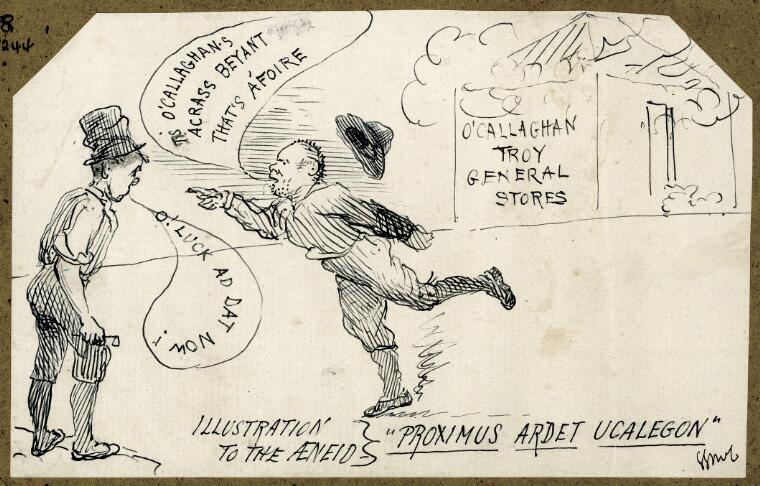 8
244
'TIS O'CALLAGHAN'S
ACRASS BEYANT
THAT'S AFOIRE
O! LUCK AD DAT NOW!
O'CALLAGHAN
TROY
GENERAL
STORES
ILLUSTRATION
TO THE ÆNEID
"PROXIMUS ARDET UCALEGON"